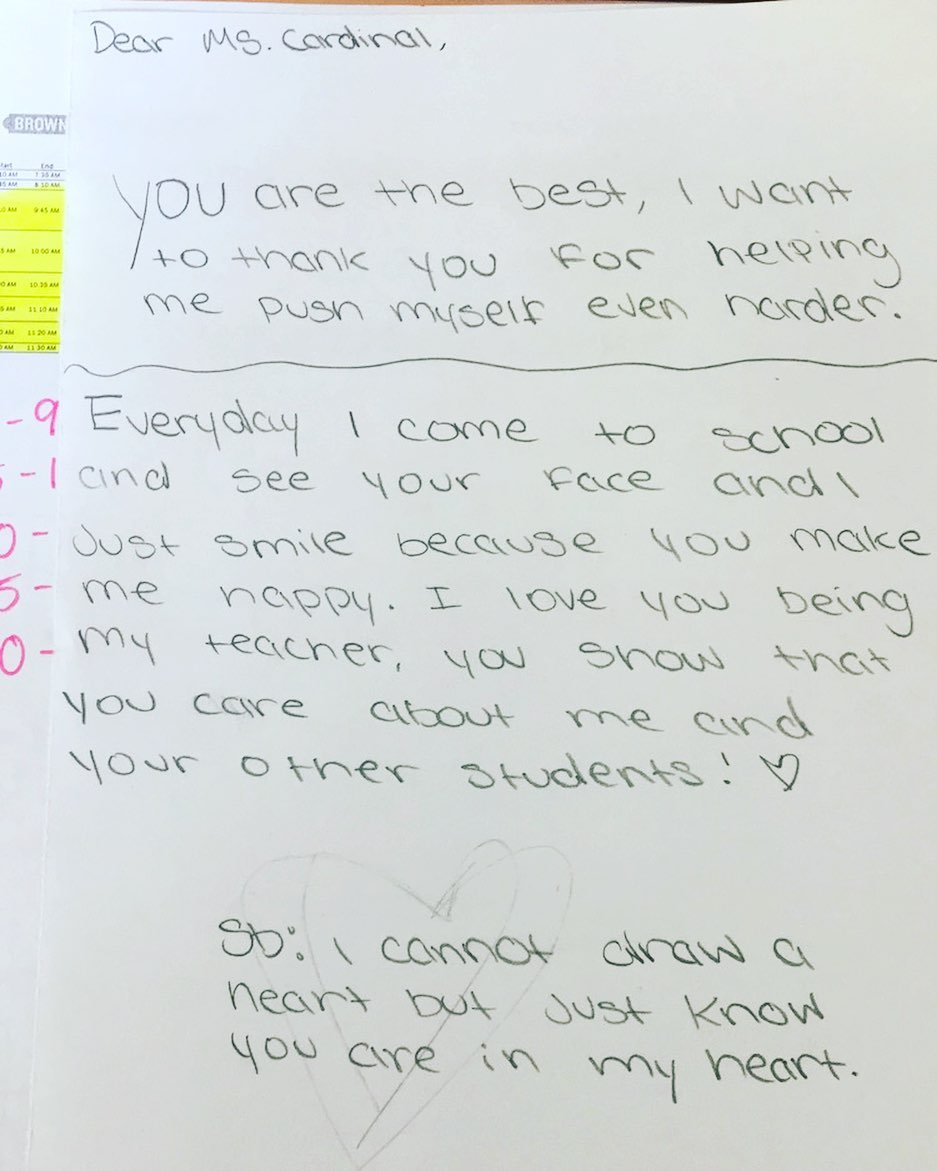 Dear Ms. Cardinal,
BROWN
End
10 AM 7:35 AM
8:10 AM
9:45 AM
10:00 AM
10:35 AM
11:10 AM
11:20 AM
11:30 AM
you are the best, I want
to thank you for helping
me push myself even harder.
-9
-1
0-
5-
0-
Everyday I come to school
and see your face and I
Just smile because you make
me happy. I love you being
my teacher, you show that
you care about me and
your other students! ♡
Sb: I cannot draw a
heart but Just know
you are in my heart.